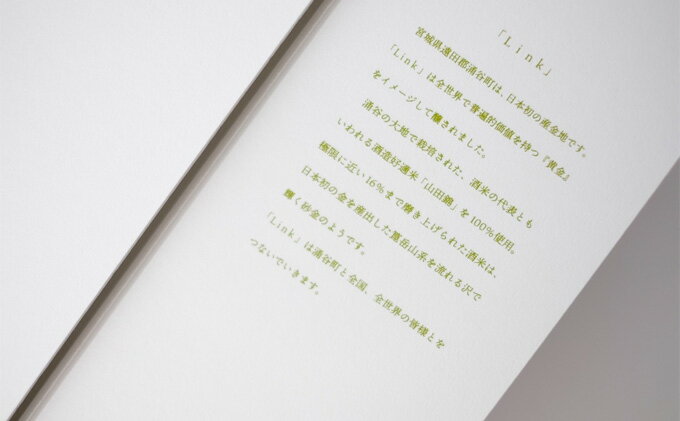 「Link」
宮城県遠田郡涌谷町は、日本初の産金地です。
「Link」は全世界で普遍的価値を持つ『黄金』
をイメージして醸されました。
涌谷の大地で栽培された、酒米の代表とも
いわれる酒造好適米「山田錦」を100%使用。
極限に近い16%まで磨き上げられた酒米は、
日本初の金を産出した箟岳山系を流れる沢で
輝く砂金のようです。
「Link」は涌谷町と全国、全世界の皆様とを
つないでいきます。